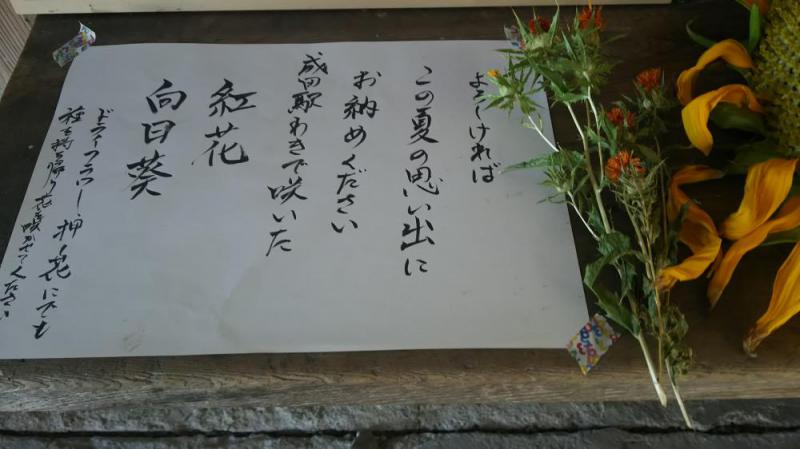 よろしければ
この夏の思い出に
お納めください
成田駅わきで咲いた
紅花
向日葵
ドライフラワー、押し花にでも
種を持ち帰り花を咲かせてください